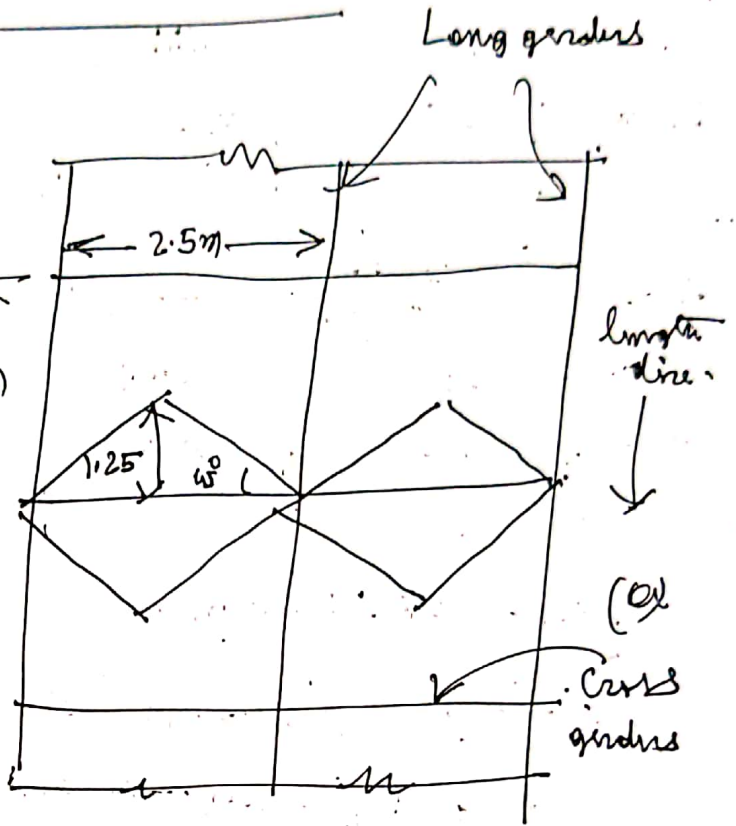 Long girders
2.5m
length
dire.
1.25
Cross
girders